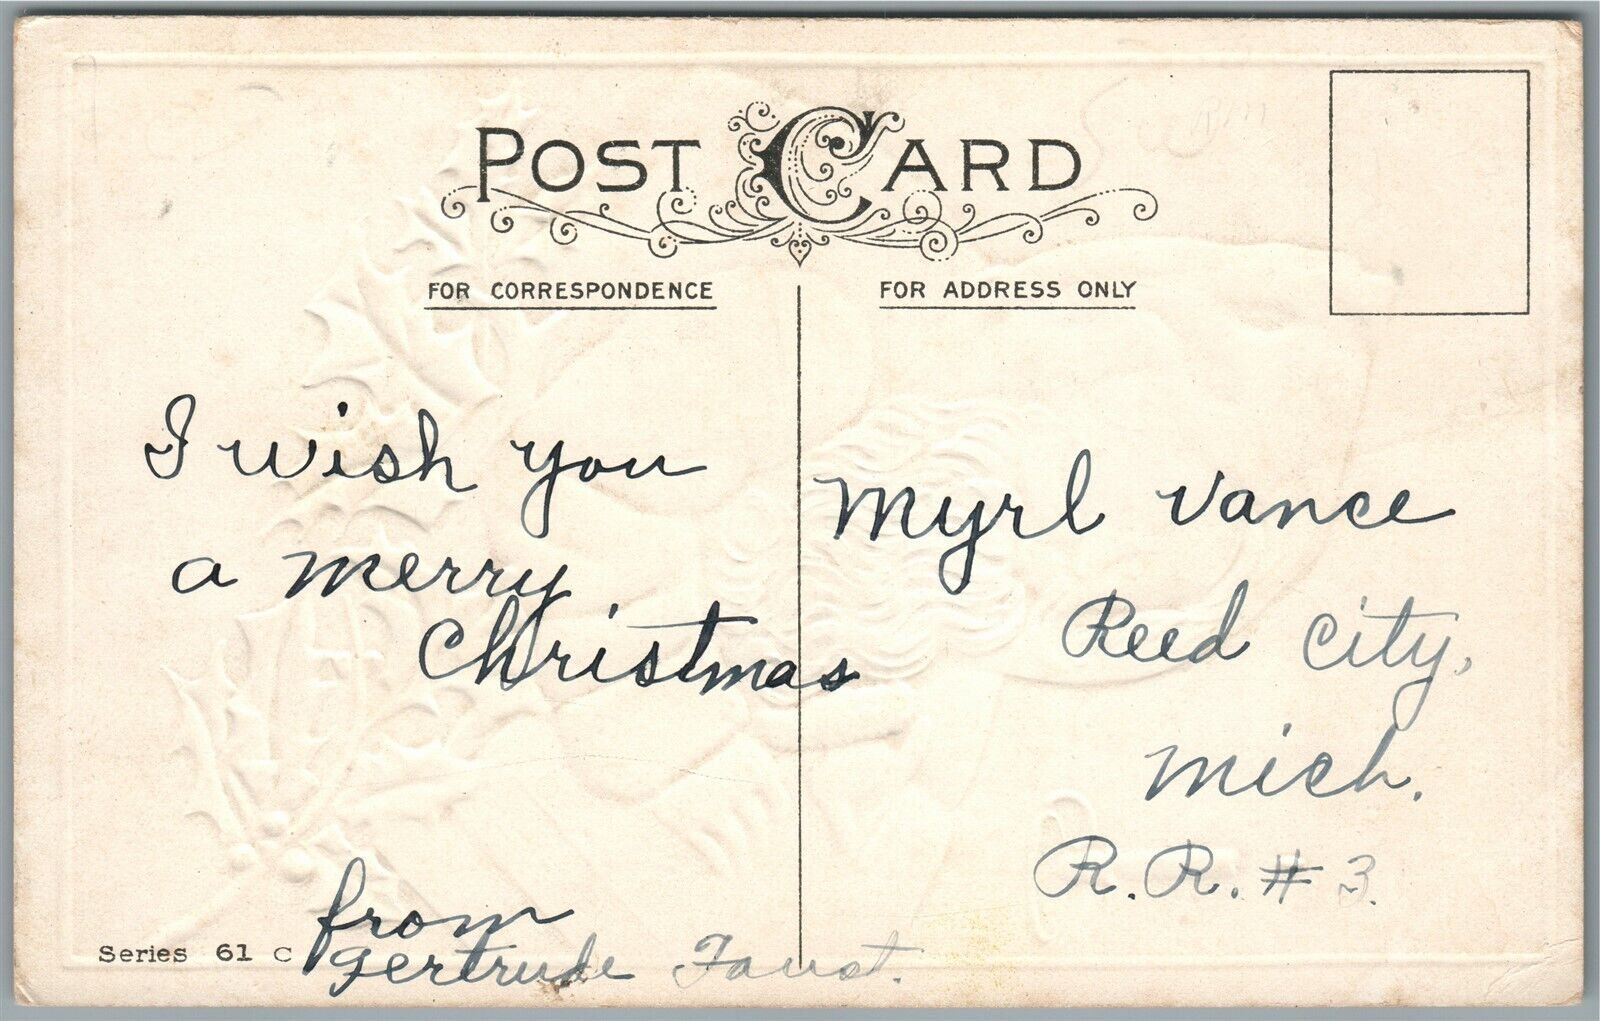 POST CARD
FOR CORRESPONDENCE
FOR ADDRESS ONLY
I wish you
a merry
Christmas
from
Gertrude Faust.
Myrl Vance
Reed City,
Mich.
R.R. # 3.
Series 61 C